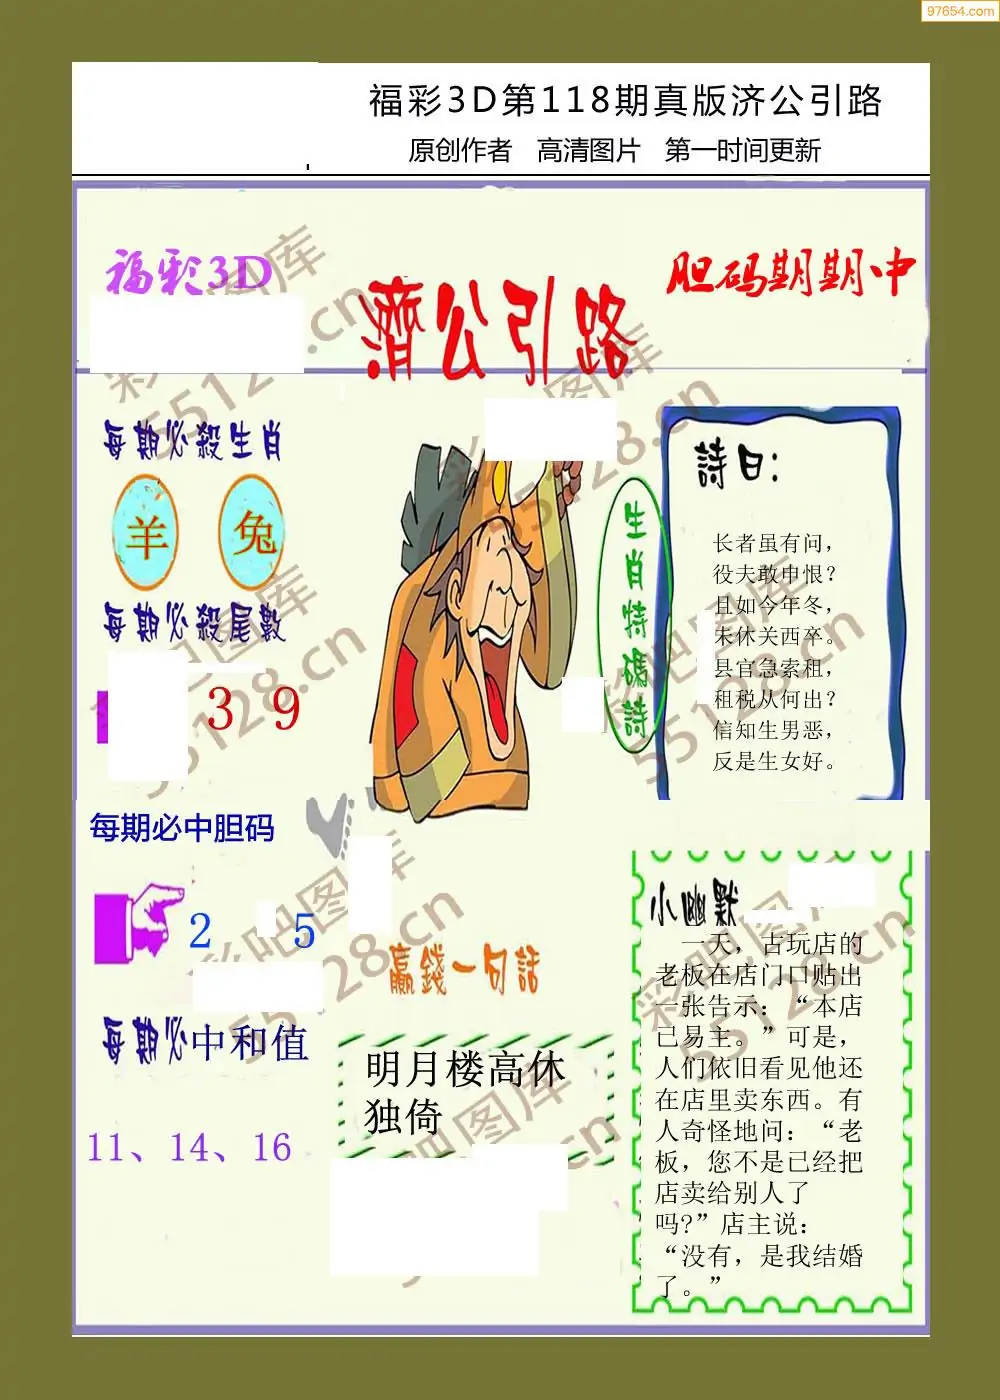 97654.com
福彩3D第118期真版济公引路
原创作者 高清图片 第一时间更新
福彩3D
濟公引路
胆码期期中
每期必殺生肖
羊 兔
每期必殺尾數
3 9
每期必中胆码
2 5
每期必中和值
11、14、16
生肖特碼詩
詩曰:
长者虽有问，
役夫敢申恨？
且如今年冬，
未休关西卒。
县官急索租，
租税从何出？
信知生男恶，
反是生女好。
赢錢一句話
明月楼高休
独倚
小幽默
一天，古玩店的
老板在店门口贴出
一张告示：“本店
已易主。”可是，
人们依旧看见他还
在店里卖东西。有
人奇怪地问：“老
板，您不是已经把
店卖给别人了
吗?”店主说：
“没有，是我结婚
了。”
彩吧图库
55128.cn
彩吧图库
55128.cn
彩吧图库
55128.cn
彩吧图库
55128.cn
彩吧图库
55128.cn
彩吧图库
55128.cn